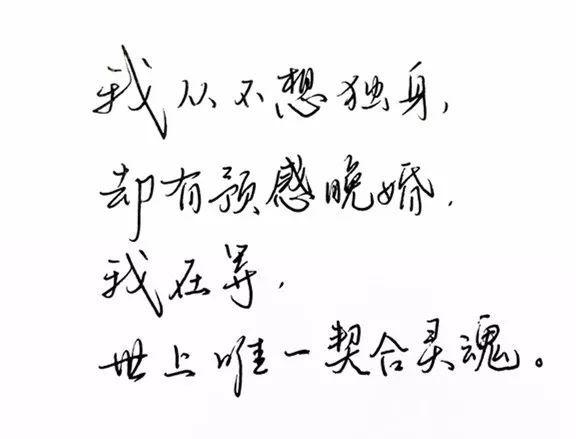 我从不想独身,
却有预感晚婚.
我在等,
世上唯一契合灵魂。